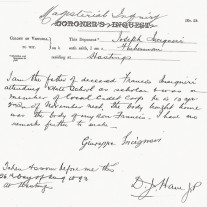 Magisterial Inquiry
CORONER'S INQUEST.
COLONY OF VICTORIA
TO WIT.
This Deponent Joseph
on oath saith, I am a Fisherman
residing at Hastings
I am the father of deceased Francis
attending State School as scholar & was a
member of Cadet Corps he is 13 yrs
old of November next, the body brought home
was the body of my son Francis. I have no
remark further to make.
Giuseppe
Taken & sworn before me this
day of Aug 1893
at Hastings